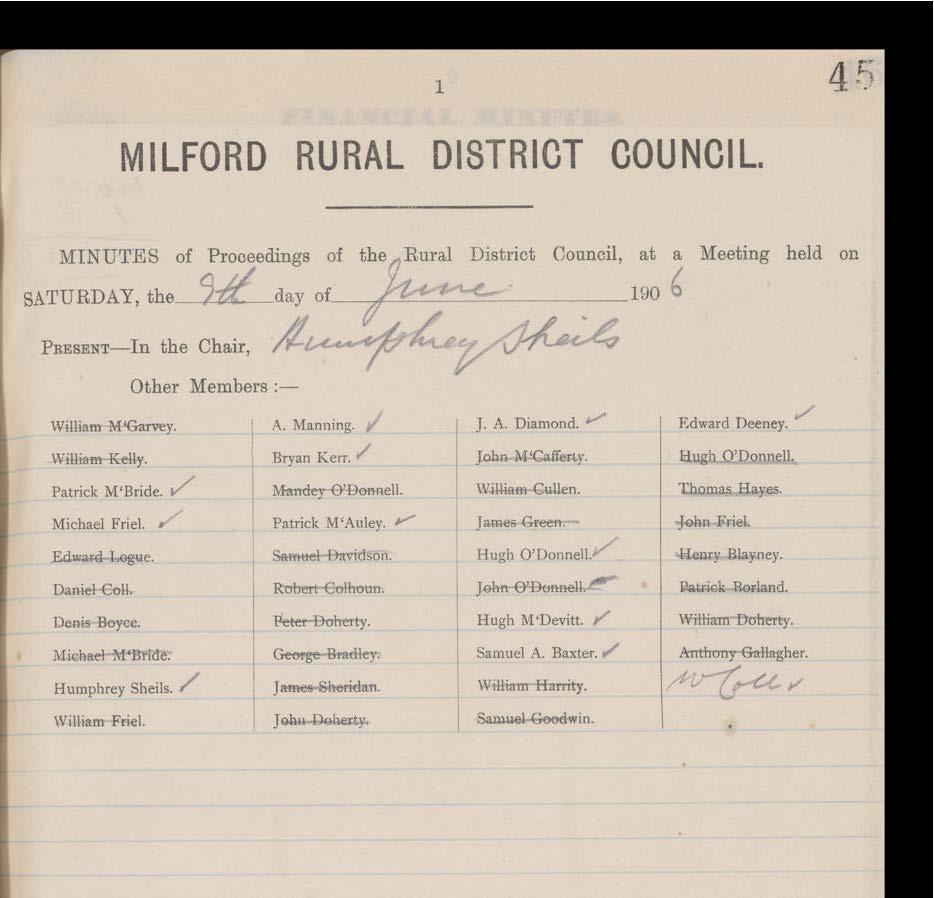 1
45
MILFORD RURAL DISTRICT COUNCIL.
MINUTES of Proceedings of the Rural District Council, at a Meeting held on
SATURDAY, the 9th day of June 1906
PRESENT—In the Chair, Humphrey Sheils
Other Members :—
William M‘Garvey. A. Manning. ✓ J. A. Diamond. ✓ Edward Deeney. ✓
William Kelly. Bryan Kerr. ✓ John M‘Cafferty. Hugh O’Donnell.
Patrick M‘Bride. ✓ Mandey O’Donnell. William Cullen. Thomas Hayes.
Michael Friel. ✓ Patrick M‘Auley. ✓ James Green. John Friel.
Edward Logue. Samuel Davidson. Hugh O’Donnell. ✓ Henry Blayney.
Daniel Coll. Robert Colhoun. John O’Donnell. Patrick Borland.
Denis Boyce. Peter Doherty. Hugh M‘Devitt. ✓ William Doherty.
Michael M‘Bride. George Bradley. Samuel A. Baxter. ✓ Anthony Gallagher.
Humphrey Sheils. ✓ James Sheridan. William Harrity. W Coll ✓
William Friel. John Doherty. Samuel Goodwin.